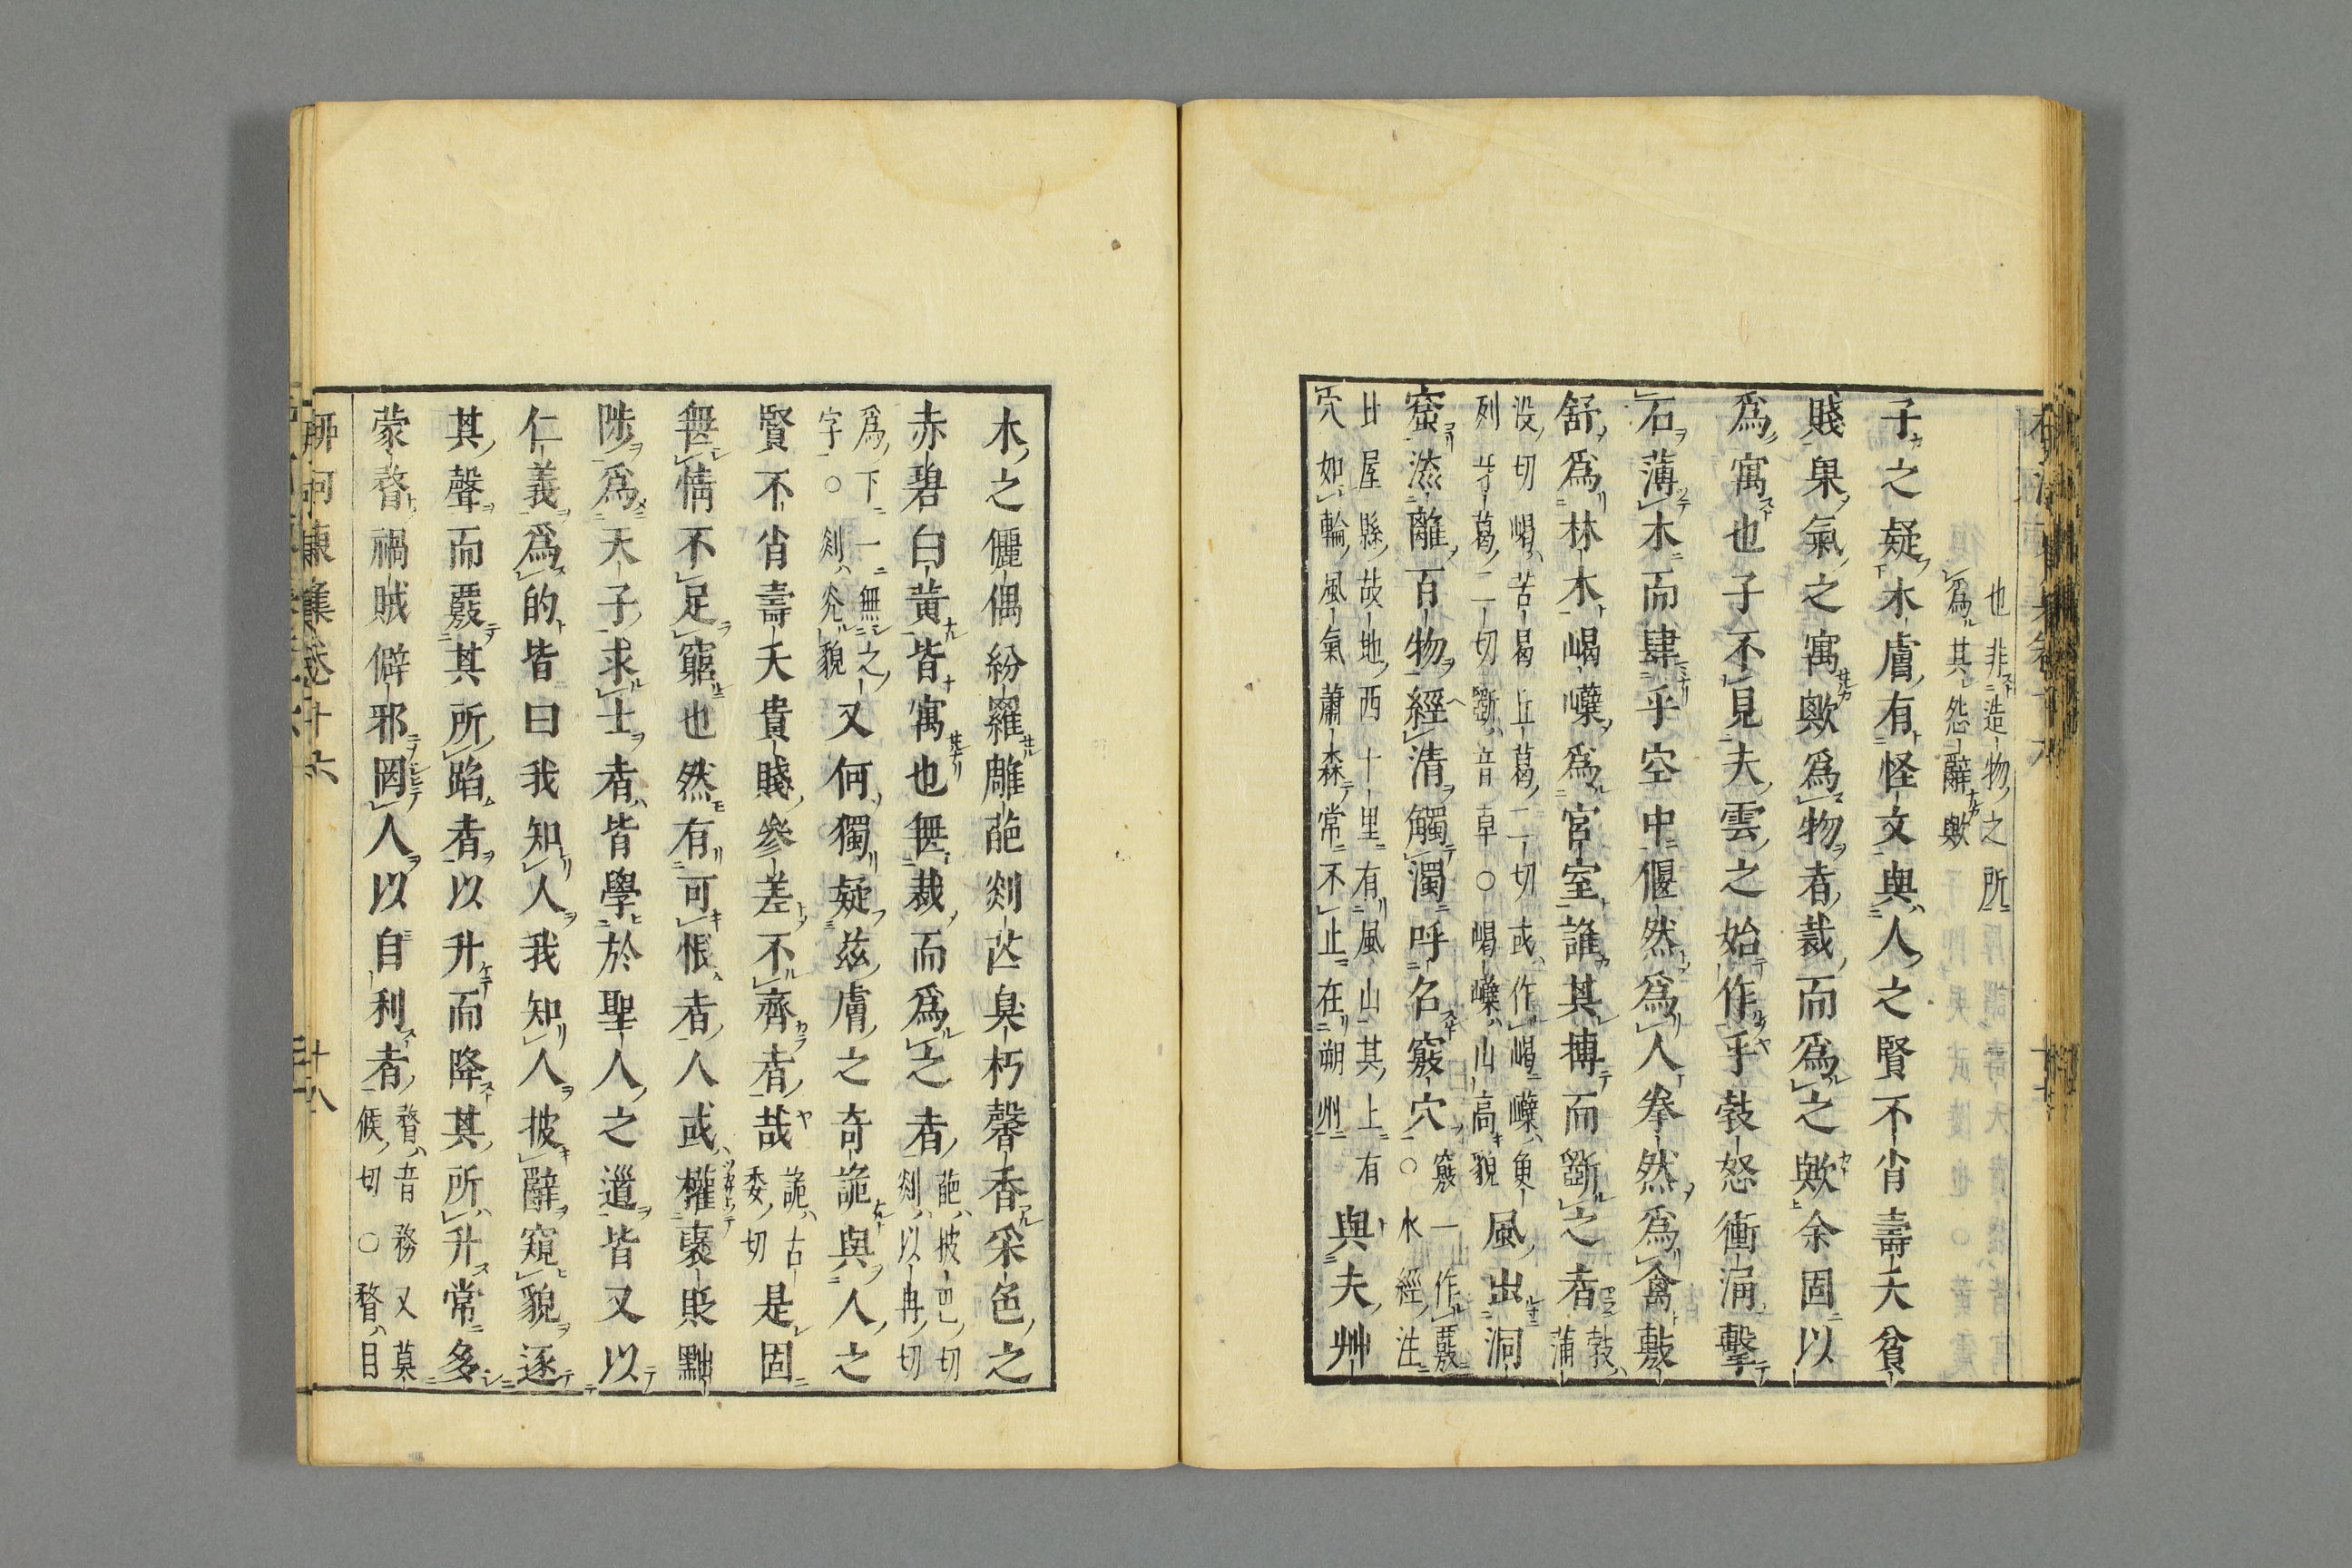 也非造物之所
爲其怨辭歟
子之疑木膚有怪文與人之賢不肖壽夭貧
賤果氣之寓歟爲物者裁而爲之歟余固以
爲寓也子不見夫雲之始作乎敄怒衝涌擊
石薄木而肆乎空中偃然爲人拳然爲禽敷
舒爲林木嵑㠔爲宮室誰其搏而斵之者
敄蒲
没切嵑苦曷丘葛二切或作嵑㠔魚
列牙葛二切斵音卓○嵑㠔山高貌
風出洞
窟流離百物經清觸濁呼召竅穴
竅一作覈
○水經注
北屈縣故地西十里有風山其上有
穴如輪風氣蕭森常不止在朔州
與夫艸
木之儷偶紛羅雕葩剡芒臭朽馨香采色之
赤碧白黄皆寓也無裁而爲之者
葩披巴切
剡以冉切
爲下一無之
字○剡尖貌
又何獨疑茲膚之奇詭與人之
賢不肖壽夭貴賤參差不齊者哉
詭古
委切
是固
無情不足窮也然有可恨者人或權褒貶黜
陟爲天子求士者皆學於聖人之道皆又以
仁義爲的皆曰我知人我知人披辭窺貌逐
其聲而覈其所蹈者以升而降其所升常多
蒙瞀禍賊僻邪罔人以自利者
瞀音務又莫
候切○瞀目
柳河東集卷十六
十八